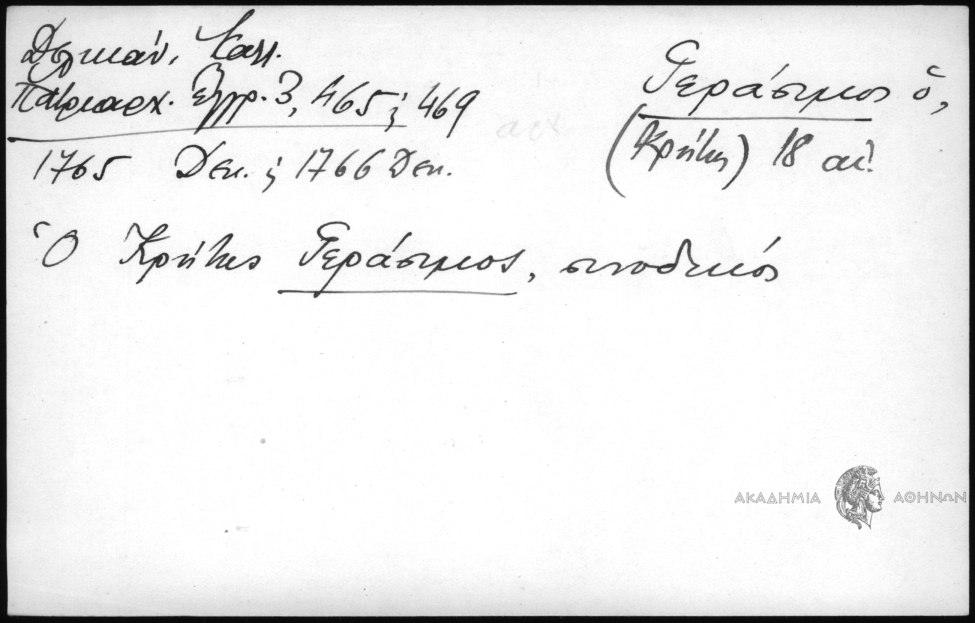 Δελικάν. Καλλ.
Πατριαρχ. Ἔγγρ. 3, 465 ἑ; 469
Γεράσιμος ὁ,
(Κρήτης) 18 αἰ.
1765 Δεκ. ἑ; 1766 Δεκ.
Ὁ Κρήτης Γεράσιμος, συνοδικός
ΑΚΑΔΗΜΙΑ ΑΘΗΝΩΝ